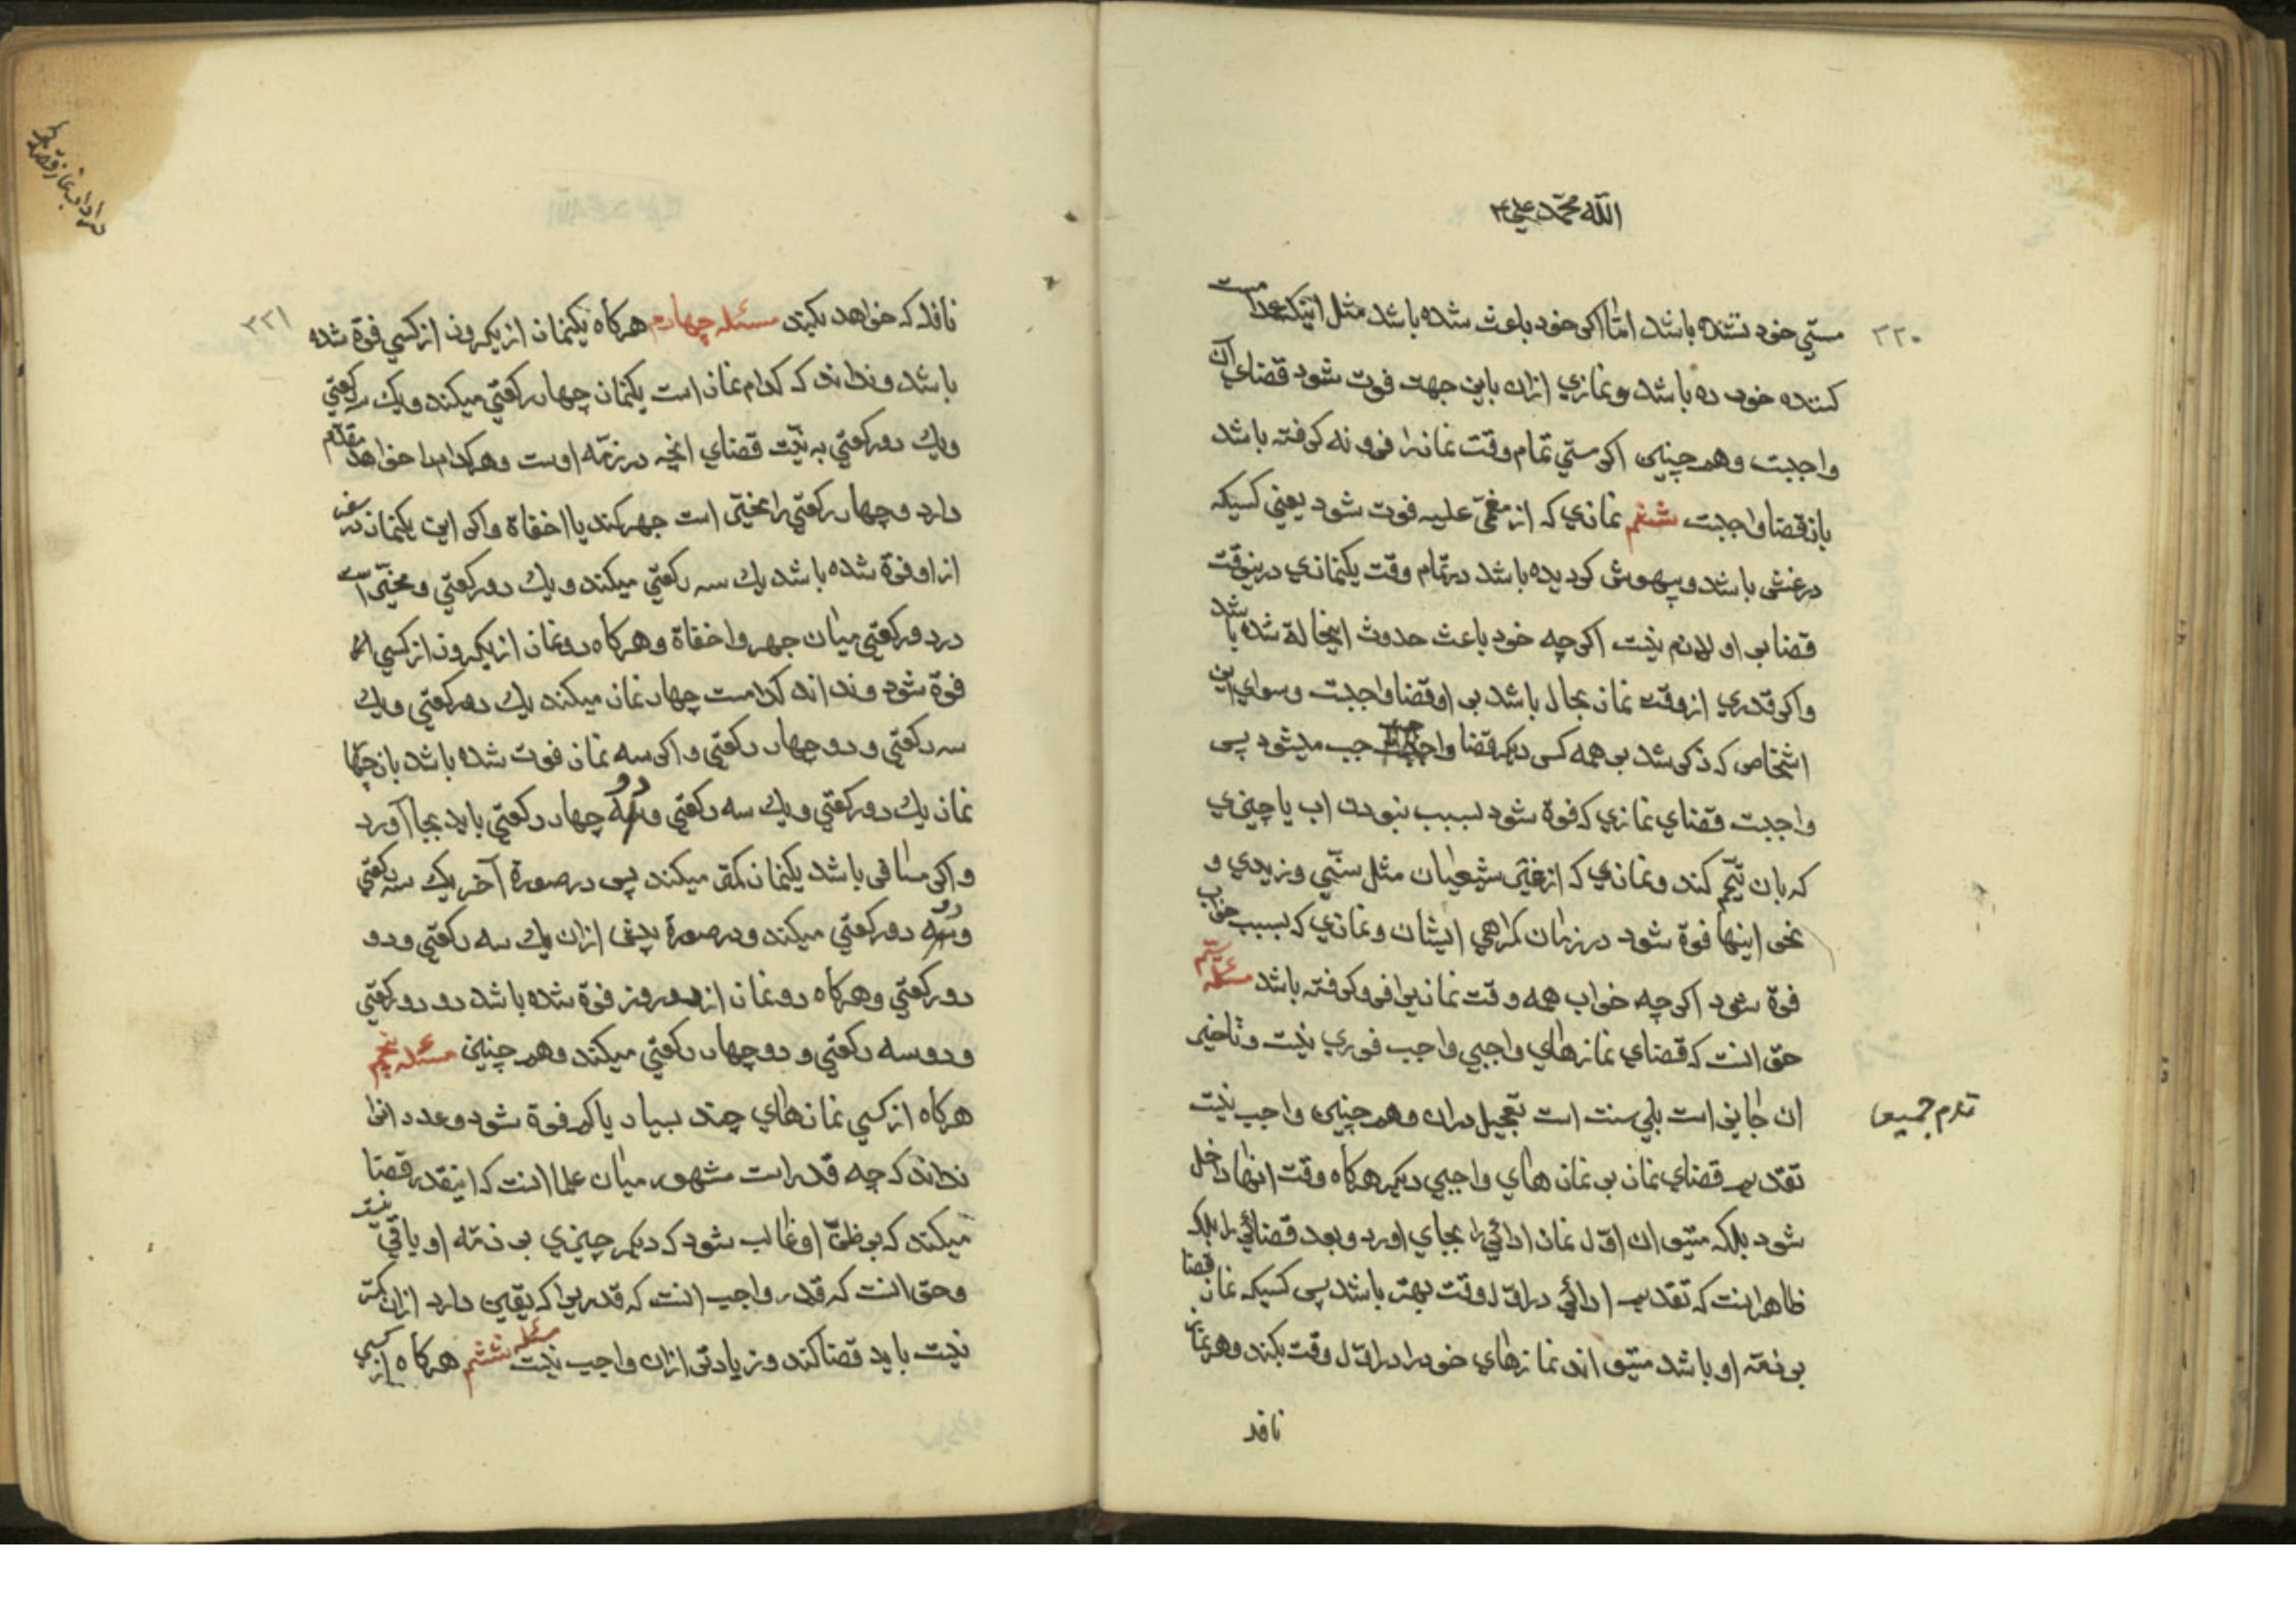 الله محمد علی
۲۲۰
مستی خود نشده باشد اما اکر خود باعث شده باشد مثل اینکه عمدا مست
کننده خورده باشد و نمازی ازان باین جهت فوت شود قضای آن
واجبت وهمچنین اکر مستی تمام وقت نمازرا فرو نه کرفته باشد
بازقضا واجبت ششم نمازی که از مغمی علیه فوت شود یعنی کسیکه
درغشی باشد و بیهوش کردیده باشد درتمام وقت یکنمازی درینوقت
قضا بر او لازم نیست اکر چه خود باعث حدوث اینحالة شده باشد
و اکر قدری از وقت نماز بحال باشد بر او قضا واجبت وسوای این
اشخاص که ذکر شد بر همه کس دیکر قضا واجب میشود پس
واجبت قضای نمازی که فوة شود بسبب نبودن اب یا چیزی
که بان تیمم کند ونمازی که از غیر شیعیان مثل سنی وزیدی و
نحو اینها فوة شود در زمان کمراهی ایشان ونمازی که بسبب خواب
فوة شود اکر چه خواب همه وقت نمازیرا فرو کرفته باشد مسئله سیم
حق انست که قضای نمازهای واجبی واجب فوری نیست وتاخیر
ان جایز است بلی سنت است تعجیل دران وهمچنین واجب نیست
تقدیم قضای نماز بر نماز های واجبی دیکر هرکاه وقت انها داخل
شود بلکه میتوان اول نماز ادائی را بجای اورد وبعد قضائی را بلکه
ظاهر اینست که تقدیم ادائی در اول وقت بهتر باشد پس کسیکه نماز قضا
بر ذمه او باشد میتواند نمازهای خودرا در اول وقت بکند وهر نماز
نافلۀ
۲۲۱
نافلۀ که خواهد بکند مسئله چهارم هرکاه یکنماز از یکروز از کسی فوة شده
باشد و نداند که کدام نماز است یکنماز چهار رکعتی میکند ویک سه رکعتی
ویک دو رکعتی به نیت قضای انچه در ذمه اوست وهرکدام را خواهد مقدم
دارد و چهار رکعتی را مخیر است جهر کند یا اخفاة واکر این یکنماز در سفر
از او فوة شده باشد یک سه رکعتی میکند ویک دو رکعتی ومخیر است
در دو رکعتی میان جهر واخفاة وهرکاه دو نماز از یکروز از کسی
فوة شود ونداند کدامست چهار نماز میکند یک دو رکعتی ویک
سه رکعتی ودو چهار رکعتی واکر سه نماز فوت شده باشد بازچهار
نماز یک دو رکعتی ویک سه رکعتی و دو چهار رکعتی باید بجا آورد
واکر مسافر باشد یکنماز کمتر میکند پس در صورة آخر یک سه رکعتی
و دو دو رکعتی میکند ودرصورة پیش ازان یک سه رکعتی ودو
دو رکعتی وهرکاه دو نماز از دو روز فوة شده باشد دو دو رکعتی
و دو سه رکعتی ودو چهار رکعتی میکند وهمچنین مسئله پنجم
هرکاه از کسی نمازهای چند بسیار یا کم فوة شود وعدد انرا
نداند که چه قدر است مشهور میان علما انست که اینقدر قضا
میکند که بر ظن او غالب شود که دیکر چیزی بر ذمه او باقی نیست
وحق انست که قدر واجب انست که قدریرا که یقین دارد ازان کمتر
نیست باید قضا کند وزیادتر ازان واجب نیست مسئله ششم هرکاه از کسی